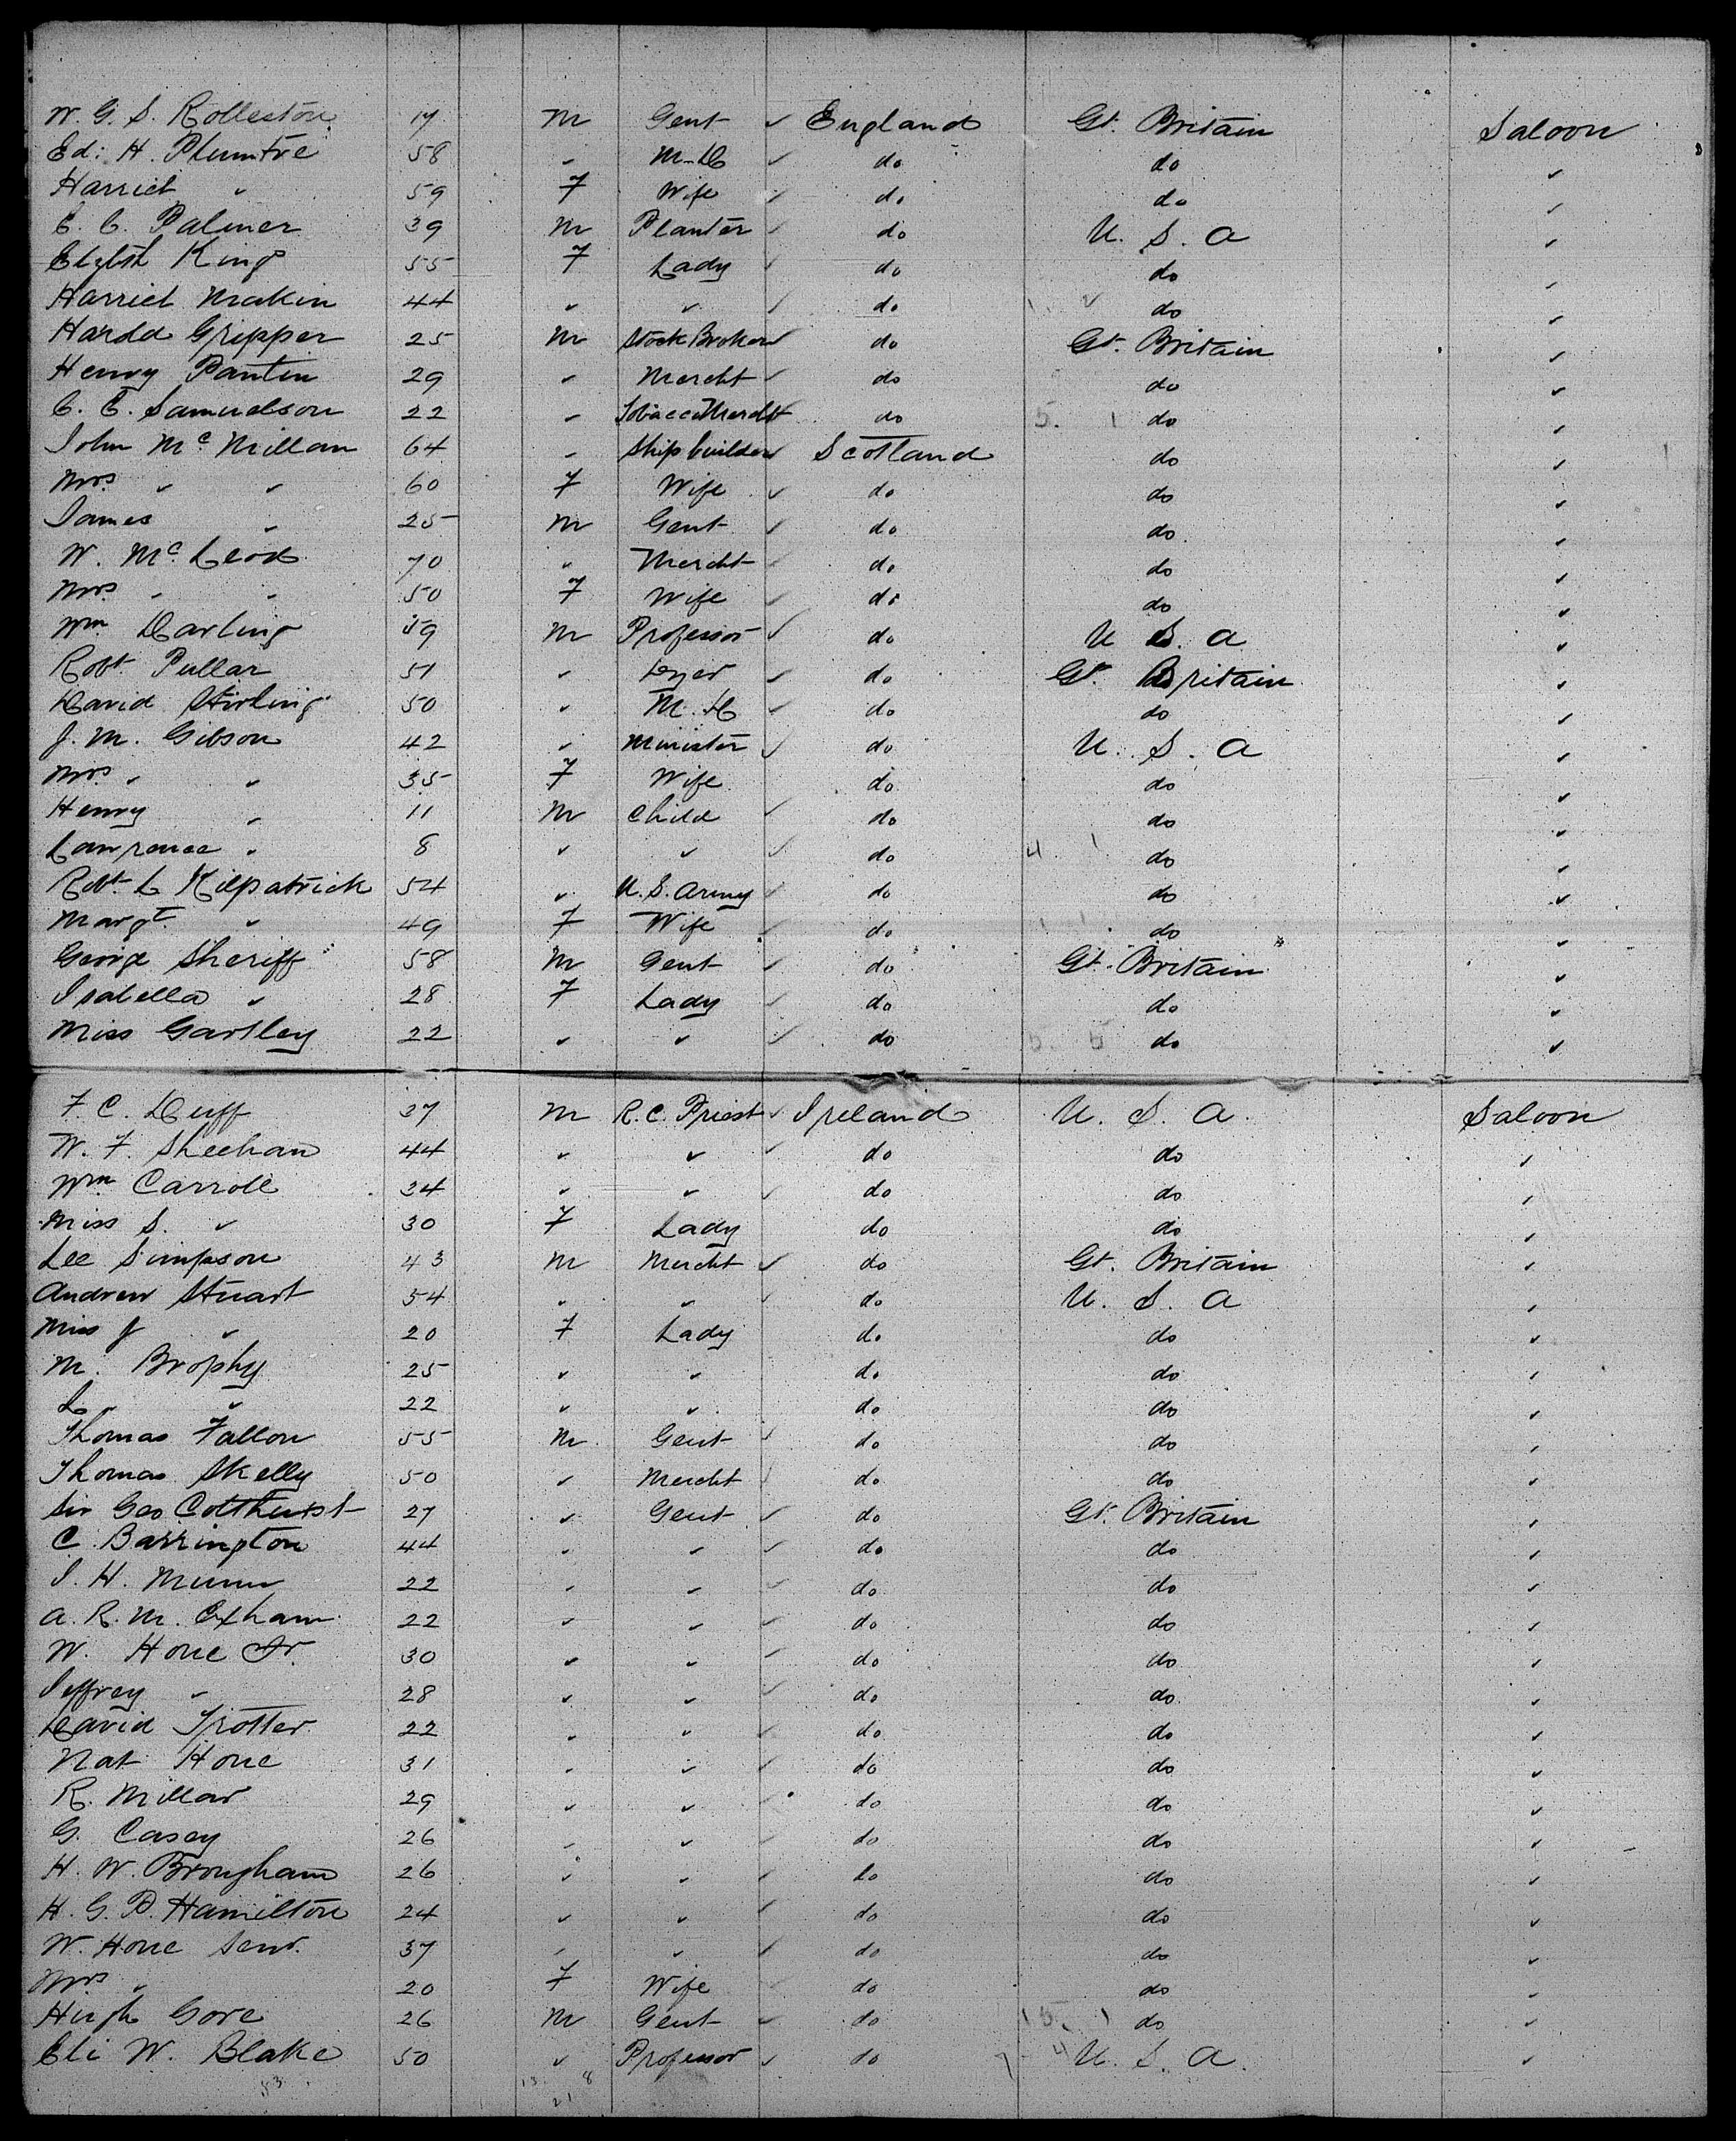 W. G. S. Rolleston 17 M Gent ✓ England Gt. Britain Saloon
Ed: H. Plumtre 58 " M.D ✓ do do "
Harriet " 59 F Wife ✓ do do "
E. C. Palmer 39 M Planter ✓ do U. S. A "
Elizbth King 55 F Lady ✓ do do "
Harriet Makin 44 " " ✓ do do "
Harold Gripper 25 M Stock Broker ✓ do Gt. Britain "
Henry Pantin 29 " Mercht ✓ do do "
C. E. Samuelson 22 " Tobacco Mercht ✓ do do "
John McMillan 64 " Ship builder ✓ Scotland do "
Mrs " " 60 F Wife ✓ do do "
James " 25 M Gent ✓ do do "
W. McLeod 70 " Mercht ✓ do do "
Mrs " " 50 F Wife ✓ do do "
Wm Darling 59 M Professor ✓ do U S. A "
Robt Pullar 51 " Dyer ✓ do Gt. Britain "
David Stirling 50 " M. D ✓ do do "
J. M. Gibson 42 " Minister ✓ do U. S. A "
Mrs " " 35 F Wife do do "
Henry " 11 M Child ✓ do do "
Lawrence " 8 " " ✓ do do "
Robt L Kilpatrick 54 " U. S. Army ✓ do do "
Margt " 49 F Wife ✓ do do "
George Sheriff 58 M Gent ✓ do Gt. Britain "
Isabella " 28 F Lady ✓ do do "
Miss Gartley 22 " " ✓ do do "
F. C. Duff 37 M R. C. Priest ✓ Ireland U. S. A Saloon
W. F. Sheehan 44 " " ✓ do do "
Wm Carroll 34 " " ✓ do do "
Miss S. " 30 F Lady do do "
Lee Simpson 43 M Mercht ✓ do Gt. Britain "
Andrew Stuart 54 " " ✓ do U. S. A "
Miss J " 20 F Lady do do "
M. Brophy 25 " " do do "
L. " 22 " " do do "
Thomas Fallon 55 M Gent ✓ do do "
Thomas Skelly 50 " Mercht ✓ do do "
Sir Geo Colthurst 27 " Gent ✓ do Gt. Britain "
C. Barrington 44 " " ✓ do do "
J. H. Munn 22 " " ✓ do do "
A. R. M. Exham 22 " " ✓ do do "
W. Hone Jr. 30 " " ✓ do do "
Jeffrey " 28 " " ✓ do do "
David Trotter 22 " " ✓ do do "
Nat Hone 31 " " ✓ do do "
R. Millar 29 " " ✓ do do "
G. Casey 26 " " ✓ do do "
H. W. Brougham 26 " " ✓ do do "
H. G. P. Hamilton 24 " " ✓ do do "
W. Hone Senr. 37 " " ✓ do do "
Mrs " 20 F Wife ✓ do do "
Hugh Gore 26 M Gent ✓ do do "
Eli W. Blake 50 " Professor ✓ do U. S. A. "
53 13 8
21